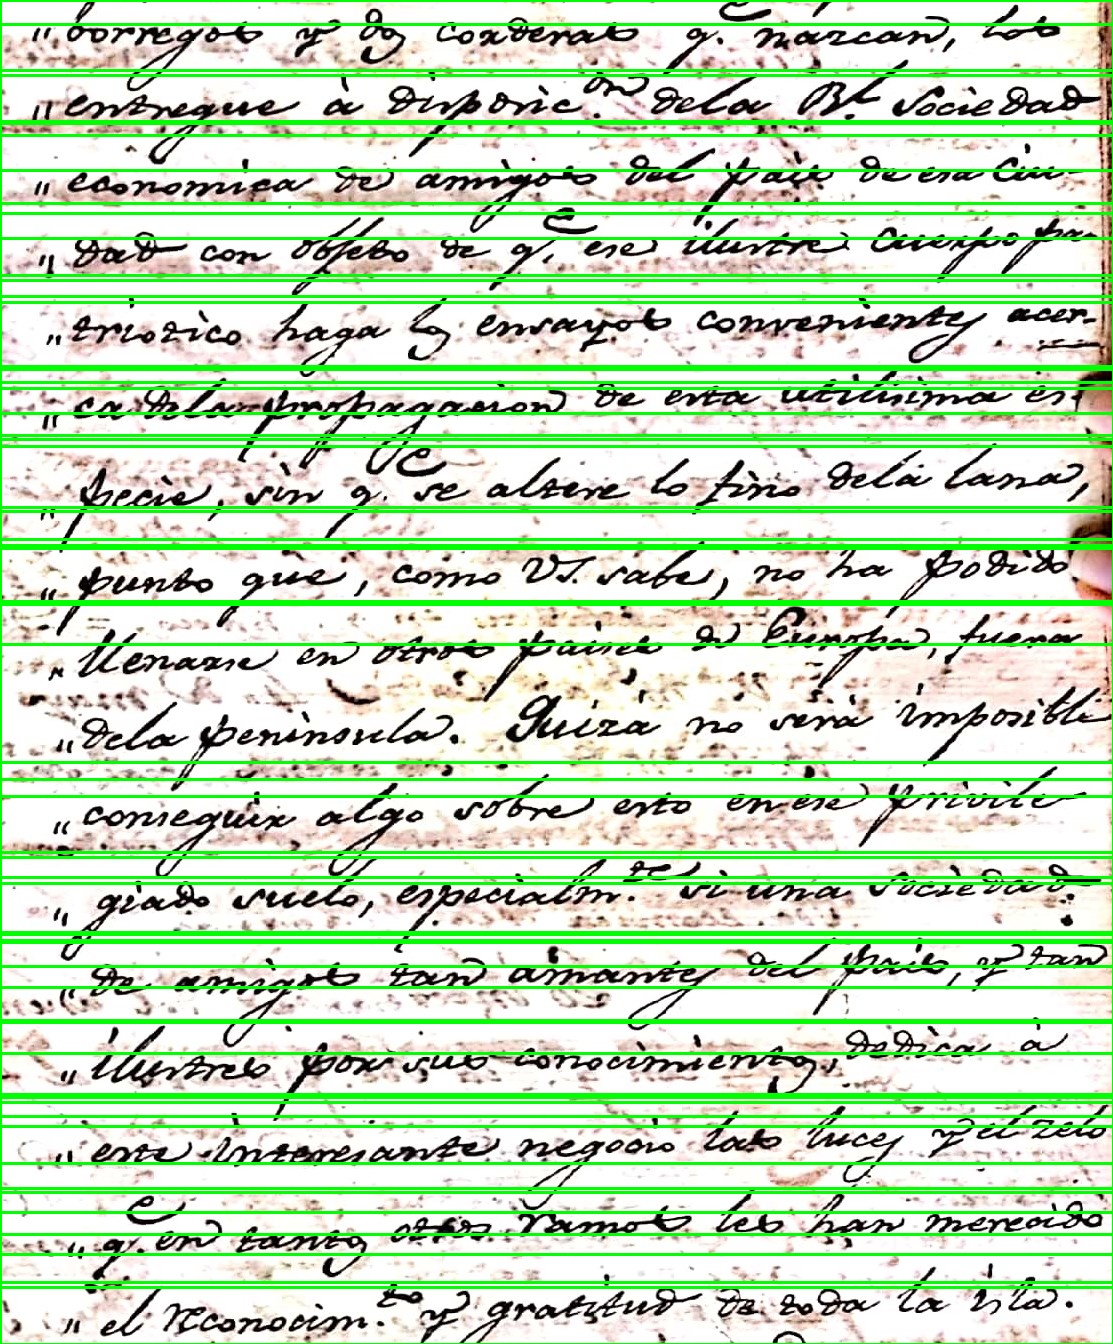 "borregos y dos corderas q.e nazcan, los
"entregue à disposic.on dela Rl. Sociedad
"economica de amigos del pais de esa Ciu-
"dad con objeto de q.e ese ilustre Cuerpo pa-
"triotico haga los ensayos convenientes acer-
"ca dela propagacion de esta utilisima es-
"pecie, sin q.e se altere lo fino dela lana,
"punto que, como VS. sabe, no ha podido
"llenarse en otros paises de Europa, fuera
"dela peninsula. Quizà no serà imposible
"conseguir algo sobre esto en ese privile-
"giado suelo, especialm.te si una sociedad
"de amigos tan amantes del pais, y tan
"ilustres por sus conocimientos, dedica à
"este interesante negocio las luces y el zelo
"q.e en tantos otros ramos les han merecido
"el reconocim.to y gratitud de toda la isla.